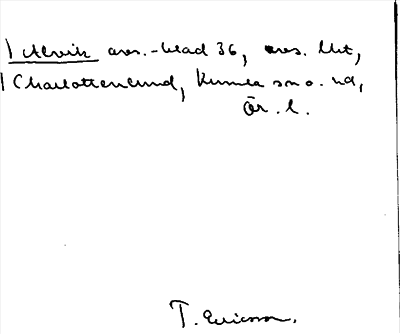 Alvik avs.-blad 36, avs. llt,
Charlottenlund, Kumla sn o. hd,
Ör. l.
T. Ericsson.